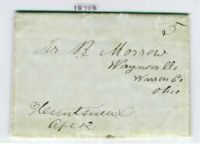 Mr R. Morrow
Waynesville
Warren Co
Ohio
Huntsville
Apl 12